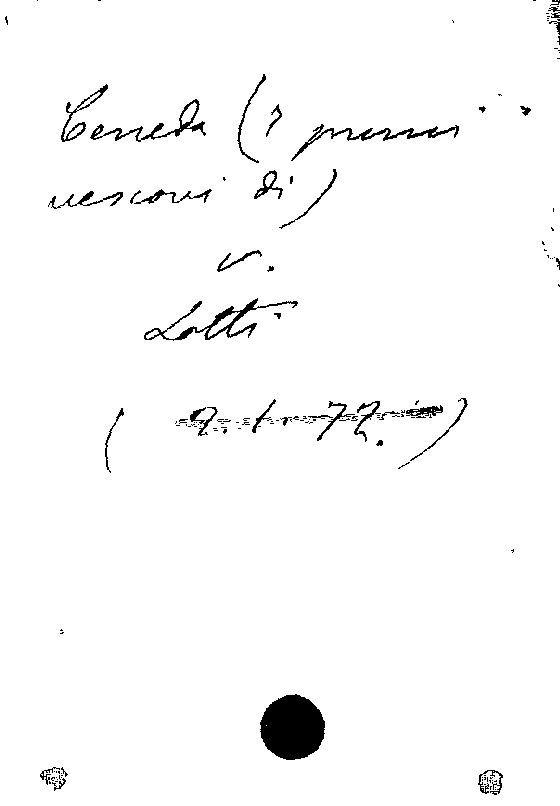 Ceneda (i primi
vescovi di)
v.
Lotti
( 9. 1. 77. )